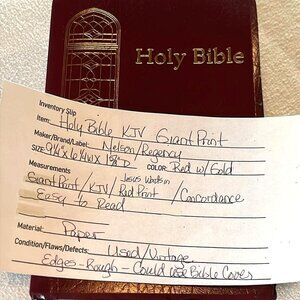 Holy Bible
Inventory Slip
Item: Holy Bible KJV Giant Print
Maker/Brand/Label: Nelson/Regency
SIZE: 9¼"x 6¼W x 1⅜"D COLOR: Red w/ Gold
Measurements Jesus Words in
Giant Print / KJV / Red Print / Concordance
Easy to Read
Material: Paper
Condition/Flaws/Defects: Used/Vintage
Edges-Rough-Could use Bible Cover